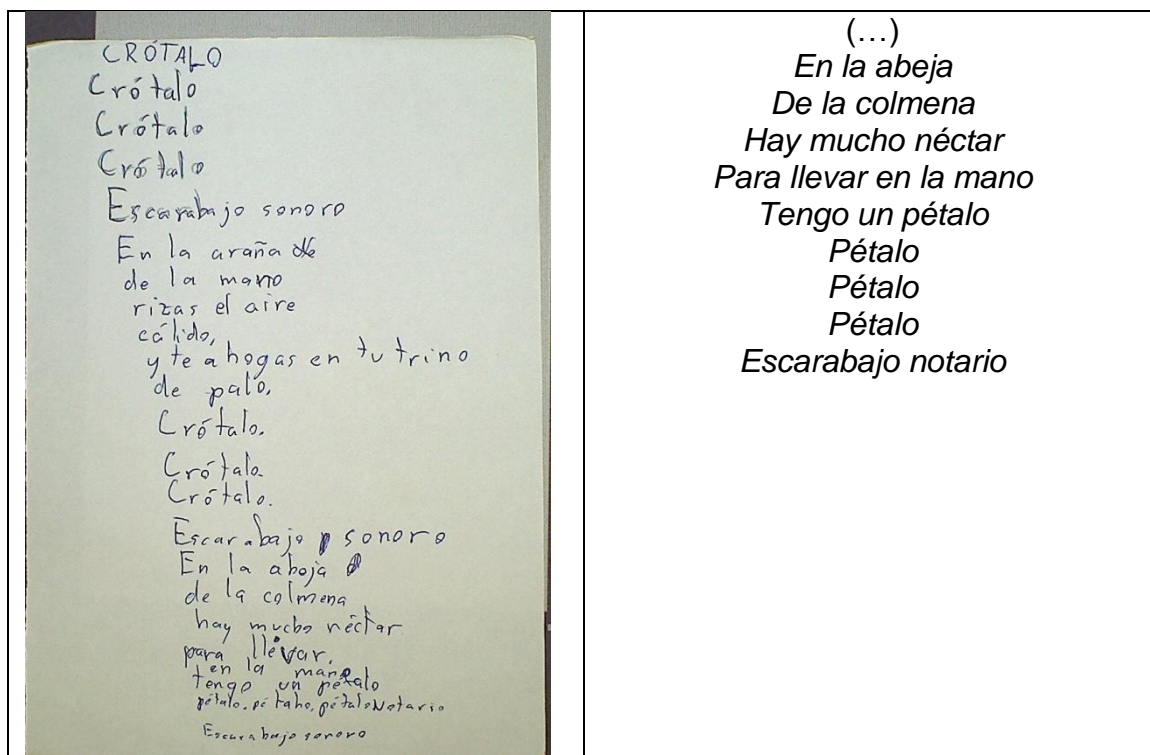 CRÓTALO
Crótalo
Crótalo
Crótalo
Escarabajo sonoro
En la araña de
de la mano
rizas el aire
cálido,
y te ahogas en tu trino
de palo.
Crótalo.
Crótalo.
Crótalo.
Escarabajo sonoro
En la aboja
de la colmena
hay mucho néctar
para llevar.
en la mano
tengo un pétalo
pétalo. pétalo, pétalo Notario
Escarabajo sonoro
(…)
En la abeja
De la colmena
Hay mucho néctar
Para llevar en la mano
Tengo un pétalo
Pétalo
Pétalo
Pétalo
Escarabajo notario